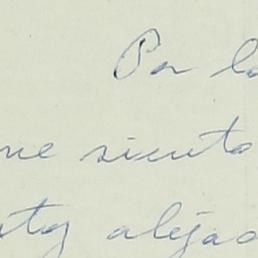 Por lo
me siento
estoy alejad